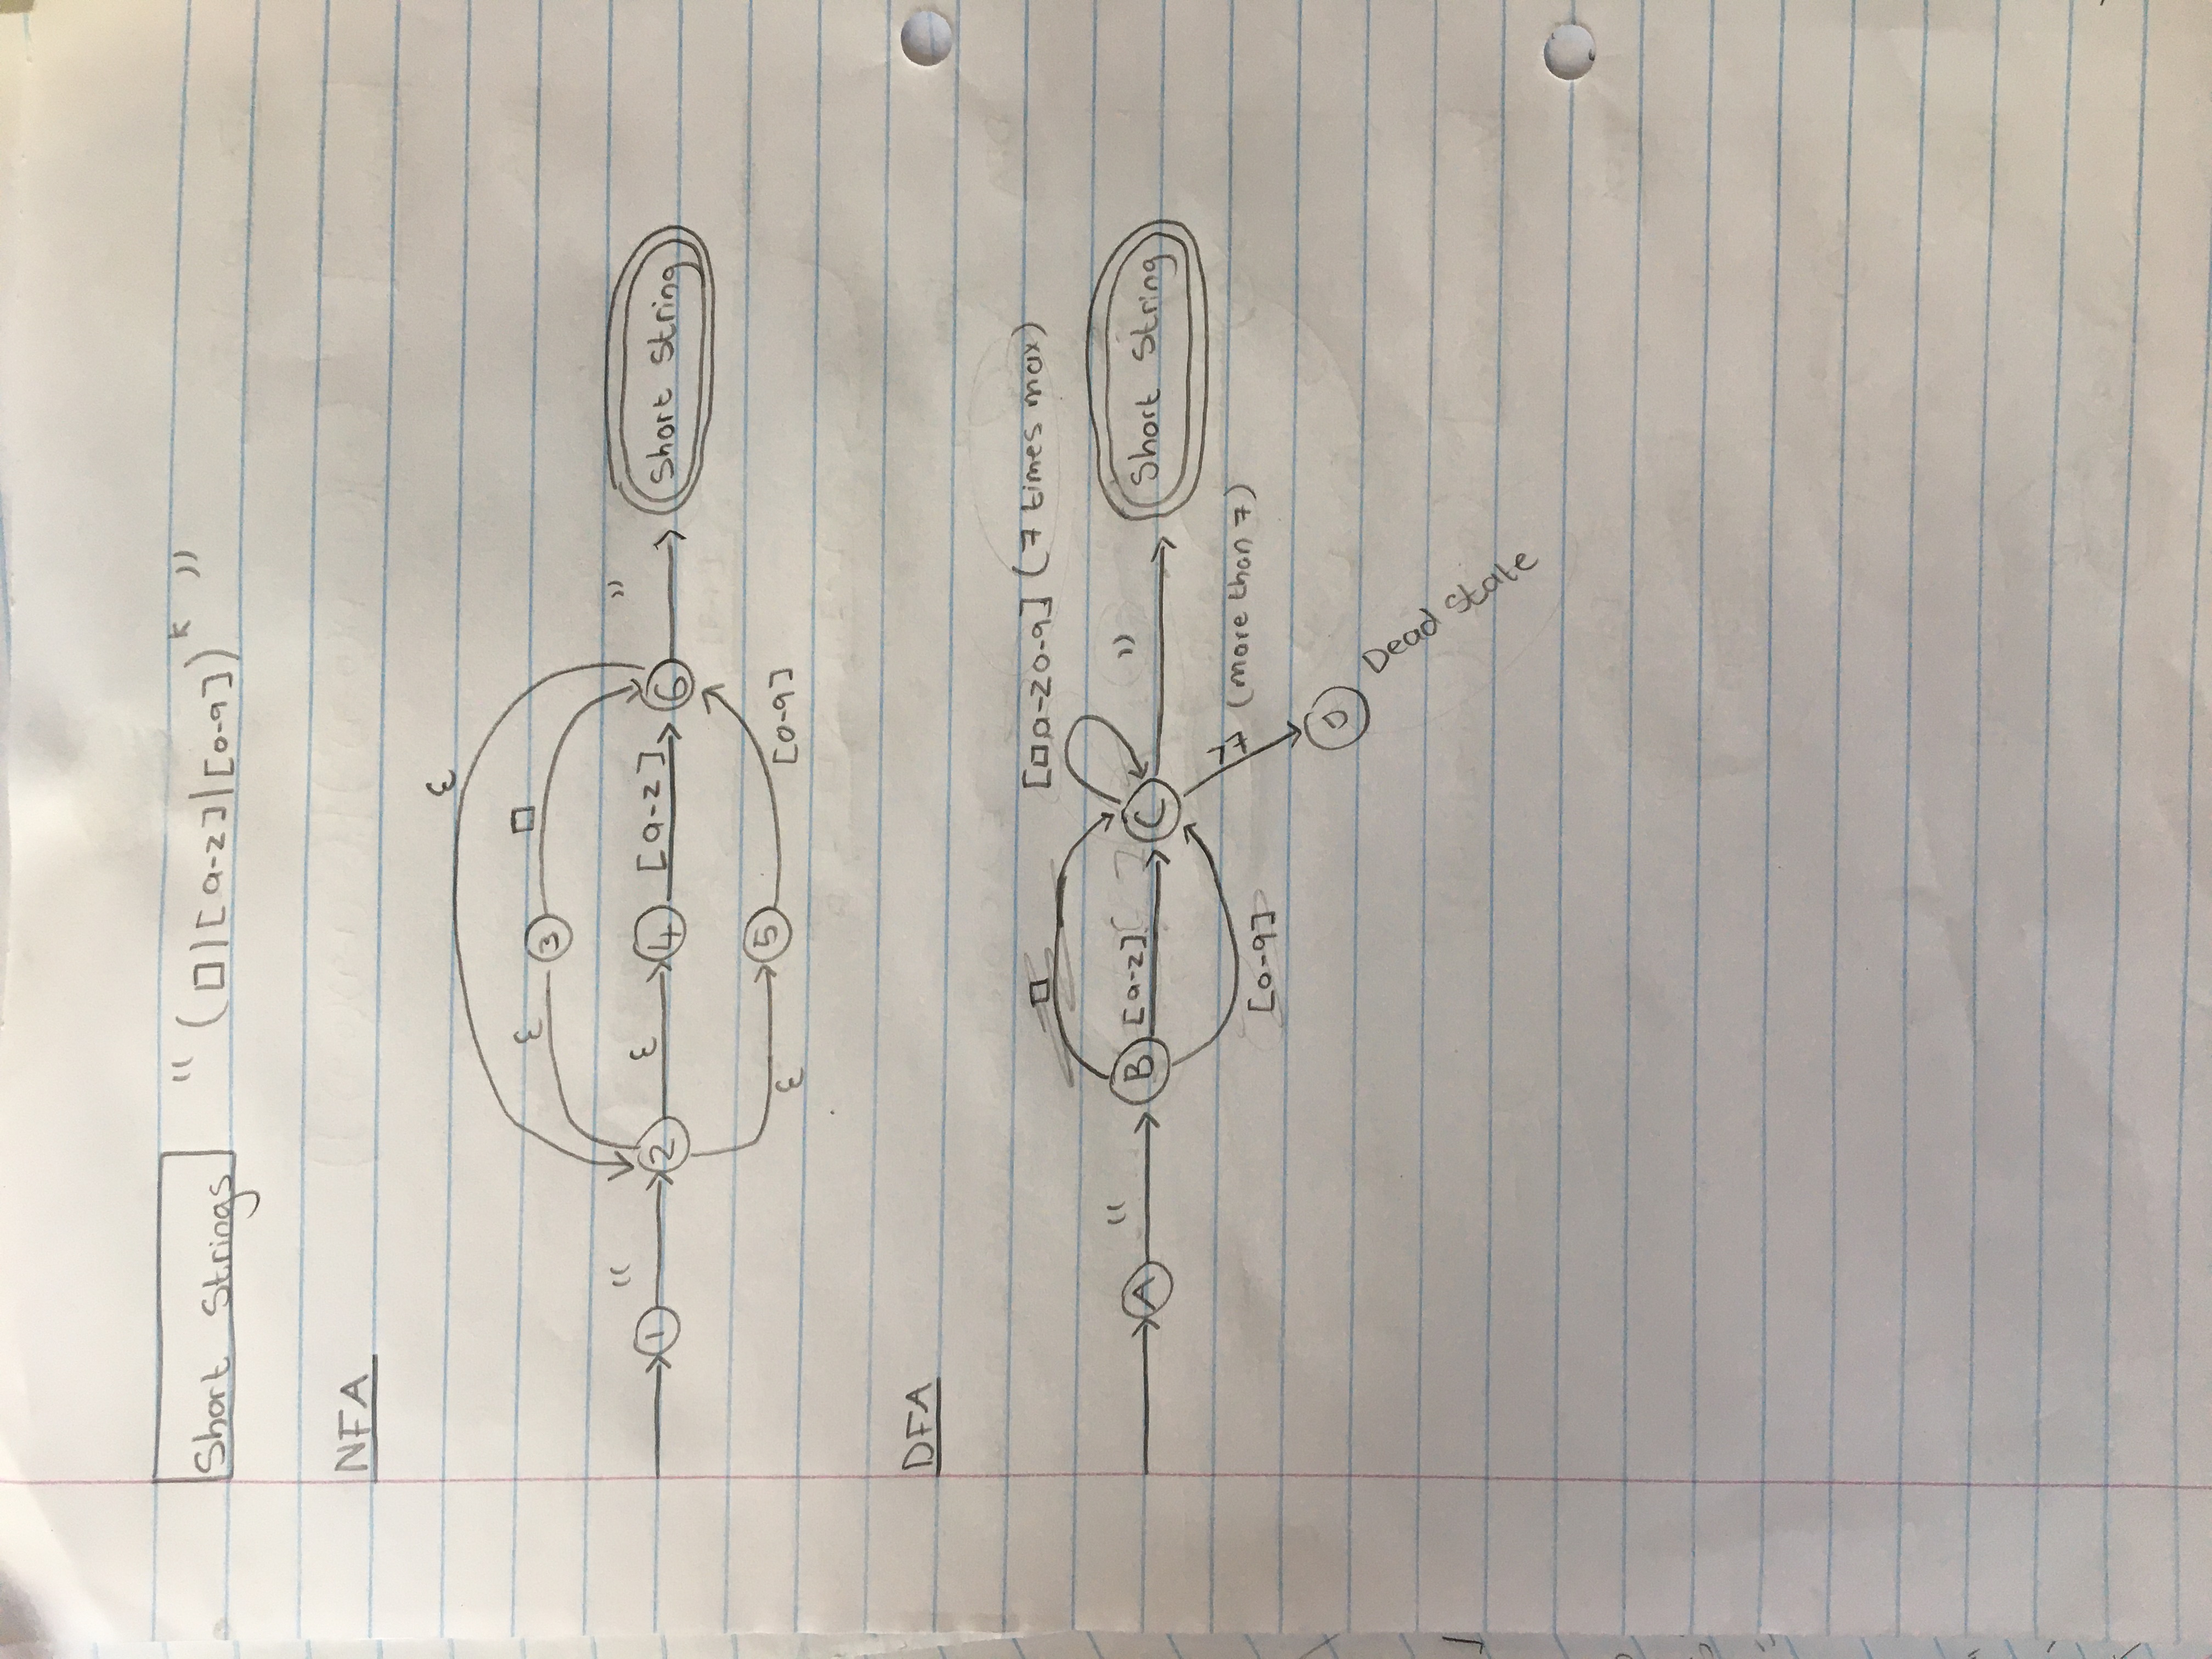 Short Strings “ (□|[a-z]|[0-9])* ”
NFA
ε
ε □
“ ”
1 2 ε 4 [a-z] 6 Short String
3
5
ε [0-9]
DFA
□ [□a-z0-9] (7 times max)
“ ”
A B [a-z] C Short String
[0-9] >7 (more than 7)
D
Dead State